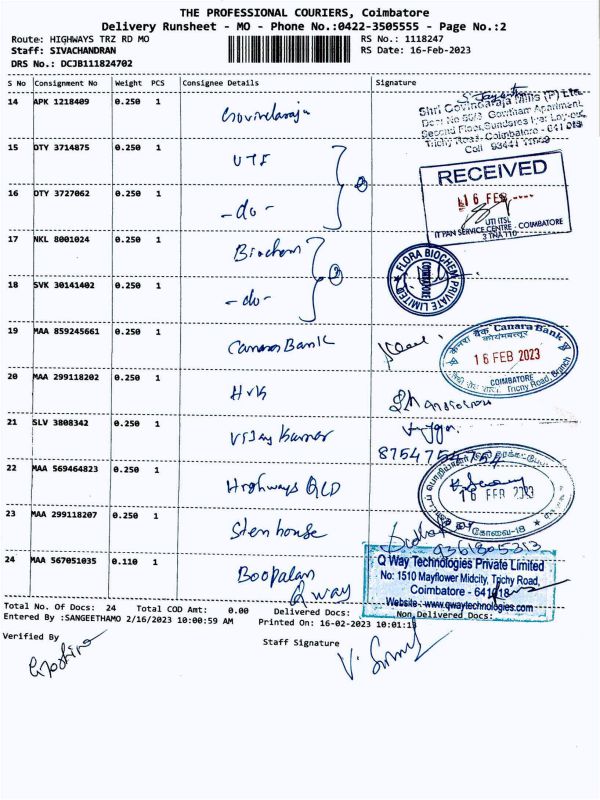 THE PROFESSIONAL COURIERS, Coimbatore
Delivery Runsheet - MO - Phone No.:0422-3505555 - Page No.:2
Route: HIGHWAYS TRZ RD MO RS No.: 1118247
Staff: SIVACHANDRAN RS Date: 16-Feb-2023
DRS No.: DCJB111824702
S No Consignment No Weight PCS Consignee Details Signature
14 APK 1218409 0.250 1 Govindaraju
Shri Govindaraja Mills (P) Ltd.
Second Floor,
Trichy Road, Coimbatore - 641 018
15 DTY 3714875 0.250 1 UTI
RECEIVED
16 FEB
16 DTY 3727062 0.250 1 -do-
UTI ITSL
IT PAN SERVICE CENTRE - COIMBATORE
3 TNA 110
17 NKL 8001024 0.250 1 Biochem
FLORA BIOCHEM PRIVATE LIMITED
COIMBATORE
18 SVK 30141402 0.250 1 -do-
19 MAA 859245661 0.250 1 Canara Bank
केनरा बैंक Canara Bank
कोयम्बत्तूर
16 FEB 2023
COIMBATORE
Trichy Road, Branch
20 MAA 299118202 0.250 1 HVK
21 SLV 3808342 0.250 1 Vijay Kumar
8754754754
22 MAA 569464823 0.250 1 Highways QCD
16 FEB 2023
கோவை-18
23 MAA 299118207 0.250 1 Stenhouse
9361805313
24 MAA 567051035 0.110 1 Boopalan
Q way
Q Way Technologies Private Limited
No: 1510 Mayflower Midcity, Trichy Road,
Coimbatore - 641018
Website: www.qwaytechnologies.com
Total No. Of Docs: 24 Total COD Amt: 0.00 Delivered Docs: Non Delivered Docs:
Entered By :SANGEETHAMO 2/16/2023 10:00:59 AM Printed On: 16-02-2023 10:01:13
Verified By Staff Signature